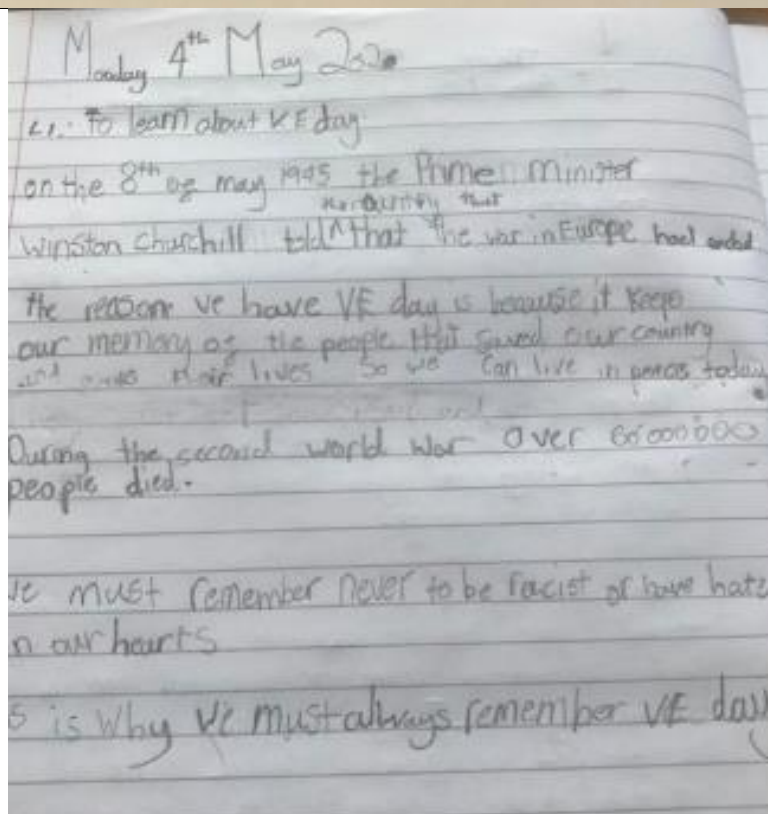 Monday 4th May 2020
L.I. To learn about VE day
on the 8th of may 1945 the Prime Minister
that
Winston Churchill told that the war in Europe had ended
the reason we have VE day is because it keeps
our memory of the people that saved our country
and their lives so we can live in peace today
During the second world war over
people died.
must remember never to be racist or have hate
n our hearts
s is why we must always remember VE day